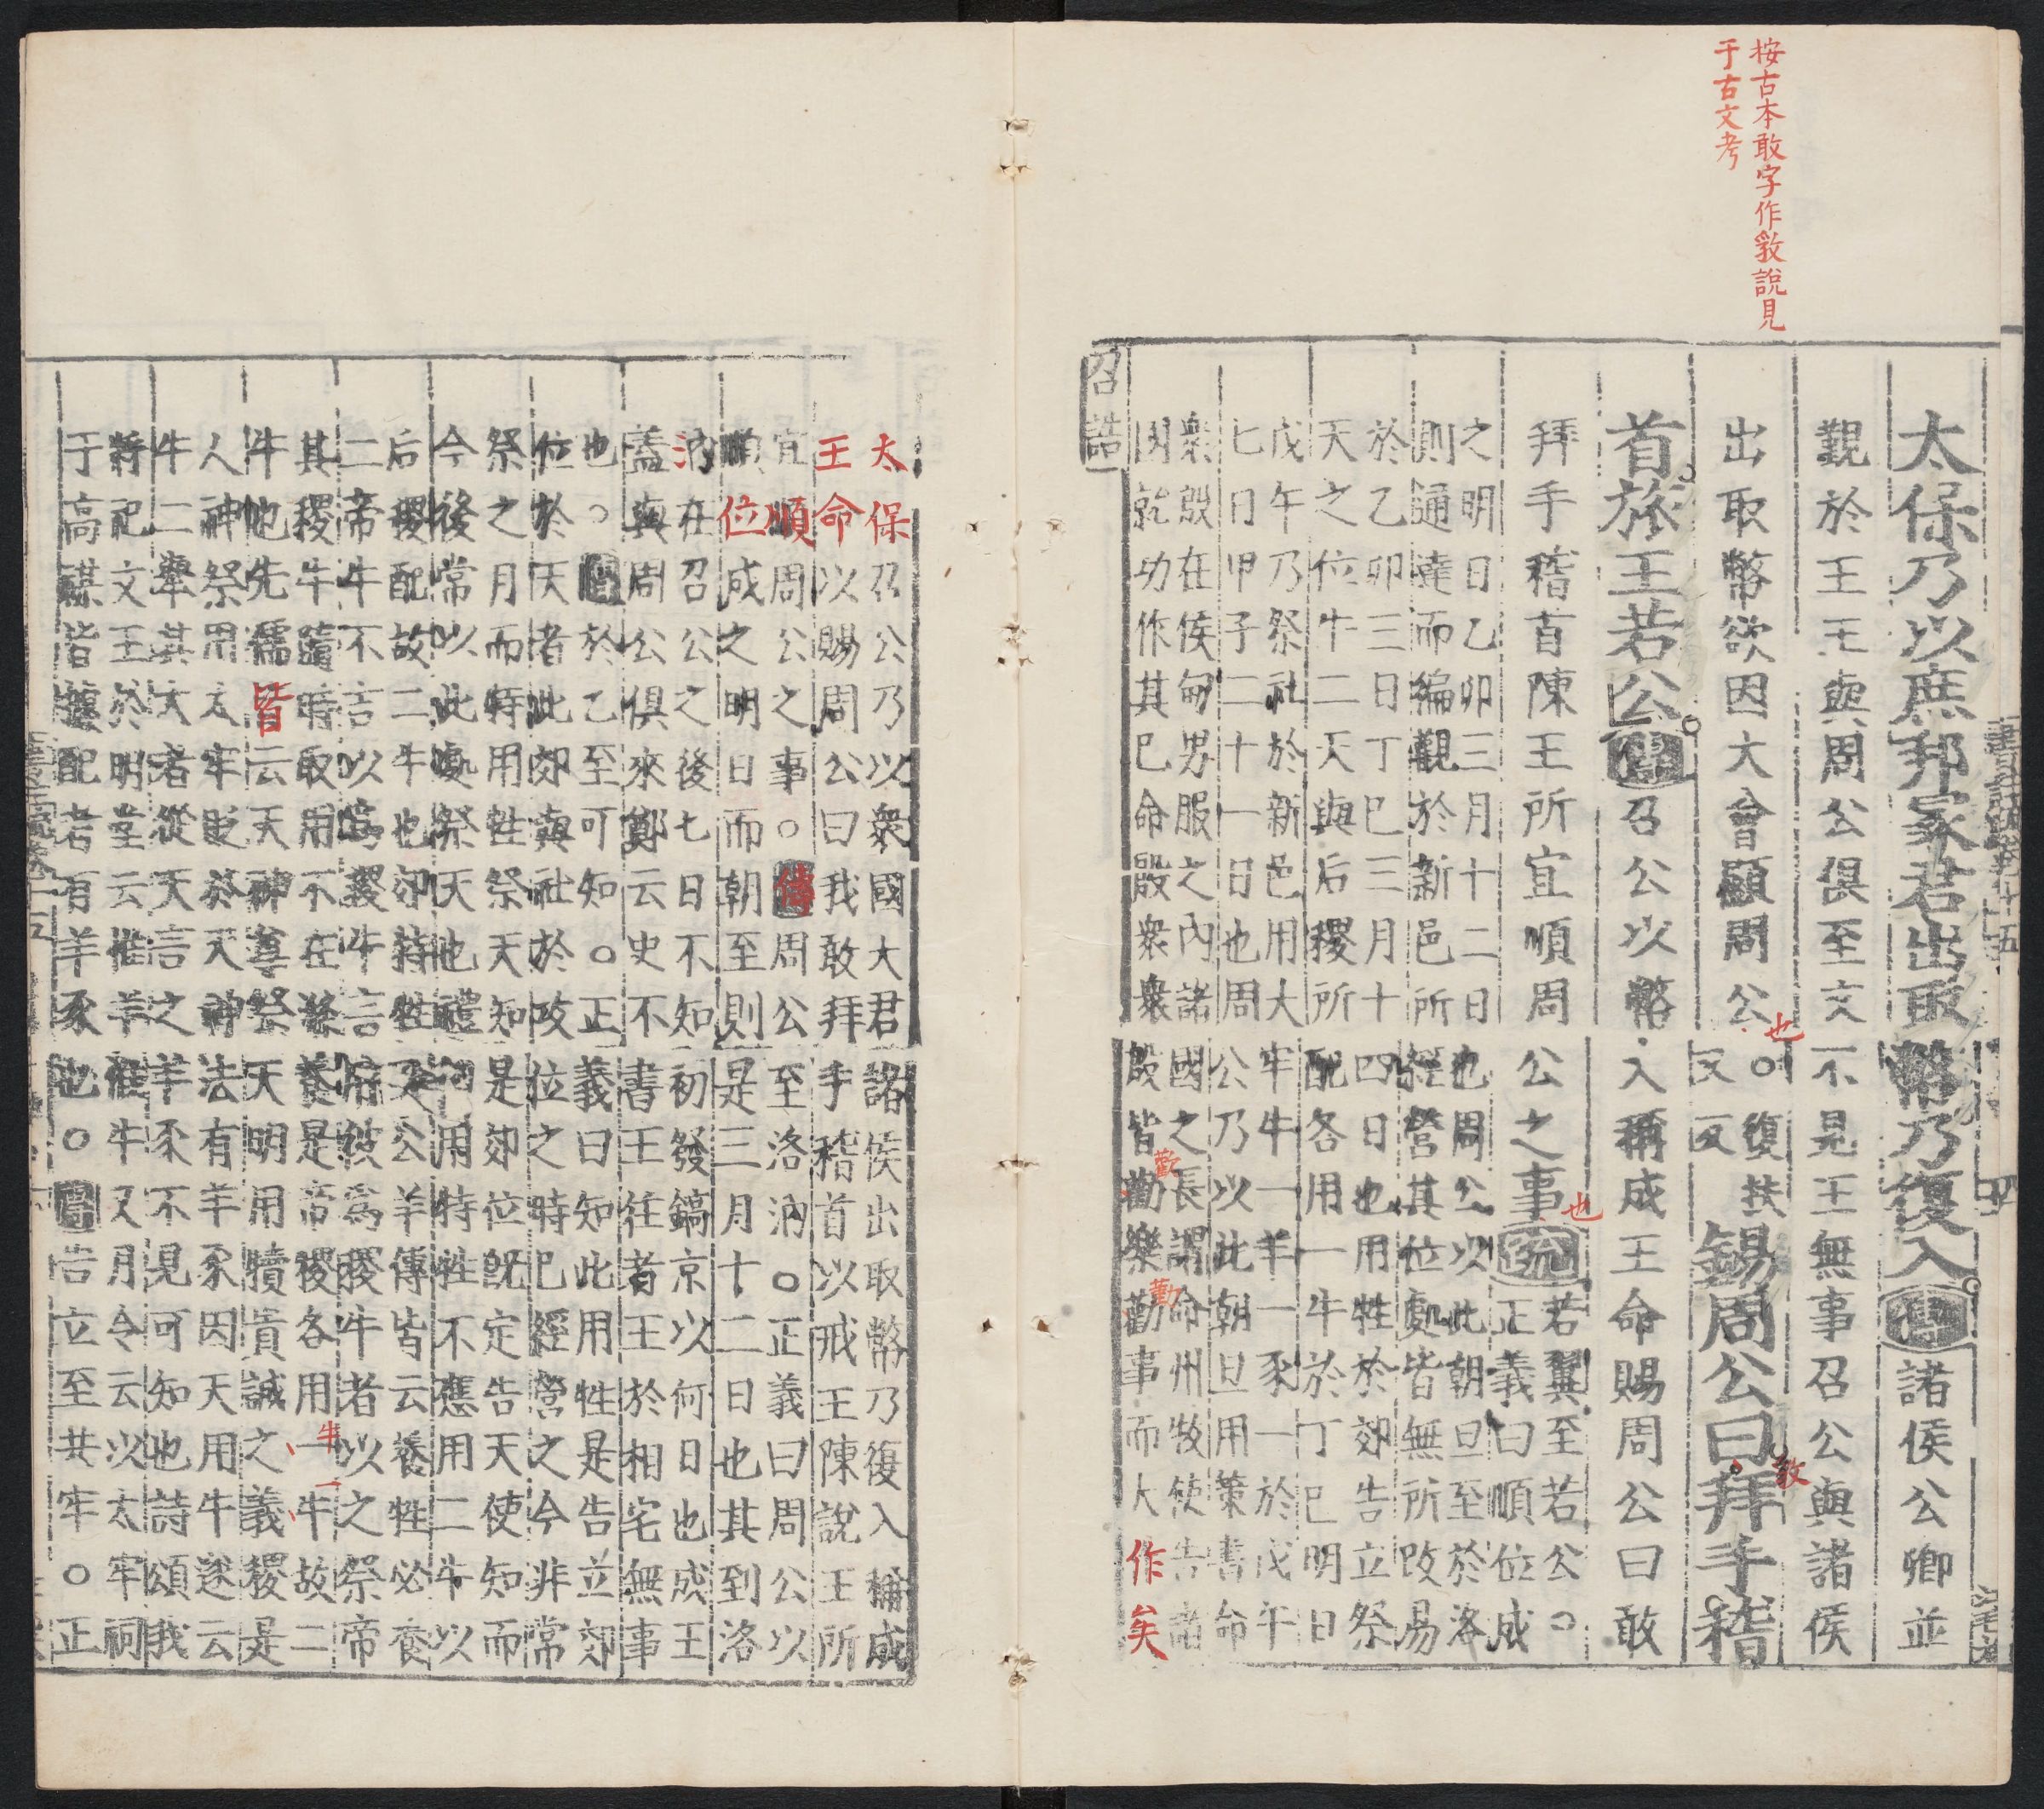 按古本敢字作𢾭說見
于古文考
太保乃以庶邦冢君出取幣乃復入傳諸侯公卿並
覲於王王與周公俱至文不見王無事召公與諸侯
出取幣欲因大會顯周公也。復扶
又反
錫周公曰拜手稽
首旅王若公傳召公以幣入稱成王命賜周公曰敢
拜手稽首陳王所宜順周公之事也疏若翼至若公。
正義曰順位成
之明日乙卯三月十二日也周公以此朝旦至於洛
則通達而編觀於新邑所經營其位處皆無所改易
於乙卯三日丁巳三月十四日也用牲於郊告立祭
天之位牛二天與后稷所配各用一牛於丁巳明日
戊午乃祭社於新邑用大牢牛一羊一豕一於戊午
七日甲子二十一日也周公乃以此朝旦用策書命
衆殷在侯甸男服之內諸國之長謂命州牧使告諸
國就功作其巳命殷衆衆殷皆勸樂勸事而大作矣
歡
勸
召誥
太保召公乃以衆國大君諸侯出取幣乃復入稱成
王命以賜周公曰我敢拜手稽首以戒王陳說王所
宜順周公之事。傳周公至洛汭。正義曰周公以
順位成之明日而朝至則是三月十二日也其到洛
汭在召公之後七日不知初發鎬京以何日也成王
蓋與周公俱來鄭云史不書王往者王於相宅無事
也。傳於乙至可知。正義曰知此用牲是告立郊
位於天者此郊與社於攻位之時巳經營之今非常
祭之月而特用牲祭天知是郊位既定告天使知而
今後常以此處祭天也禮郊用特牲不應用二牛以
后稷配故二牛也郊特牲又公羊傳皆云養牲必養
二帝牛不言以爲稷牛言用彼爲稷牛者以之祭帝
其稷牛隨時取用不在滌養是帝稷各用一牛故二
牛一
牛也先儒皆云天神尊祭天明用犢貴誠之義稷是
人神祭用太牢貶於天神法有羊豕因天用牛遂云
牛二舉其大者從天言之羊豕不見可知也詩頌我
將祀文王於明堂云惟羊惟牛又月令云以太牢祠
于高禖皆據配者有羊豕也。傳告立至共牢。正